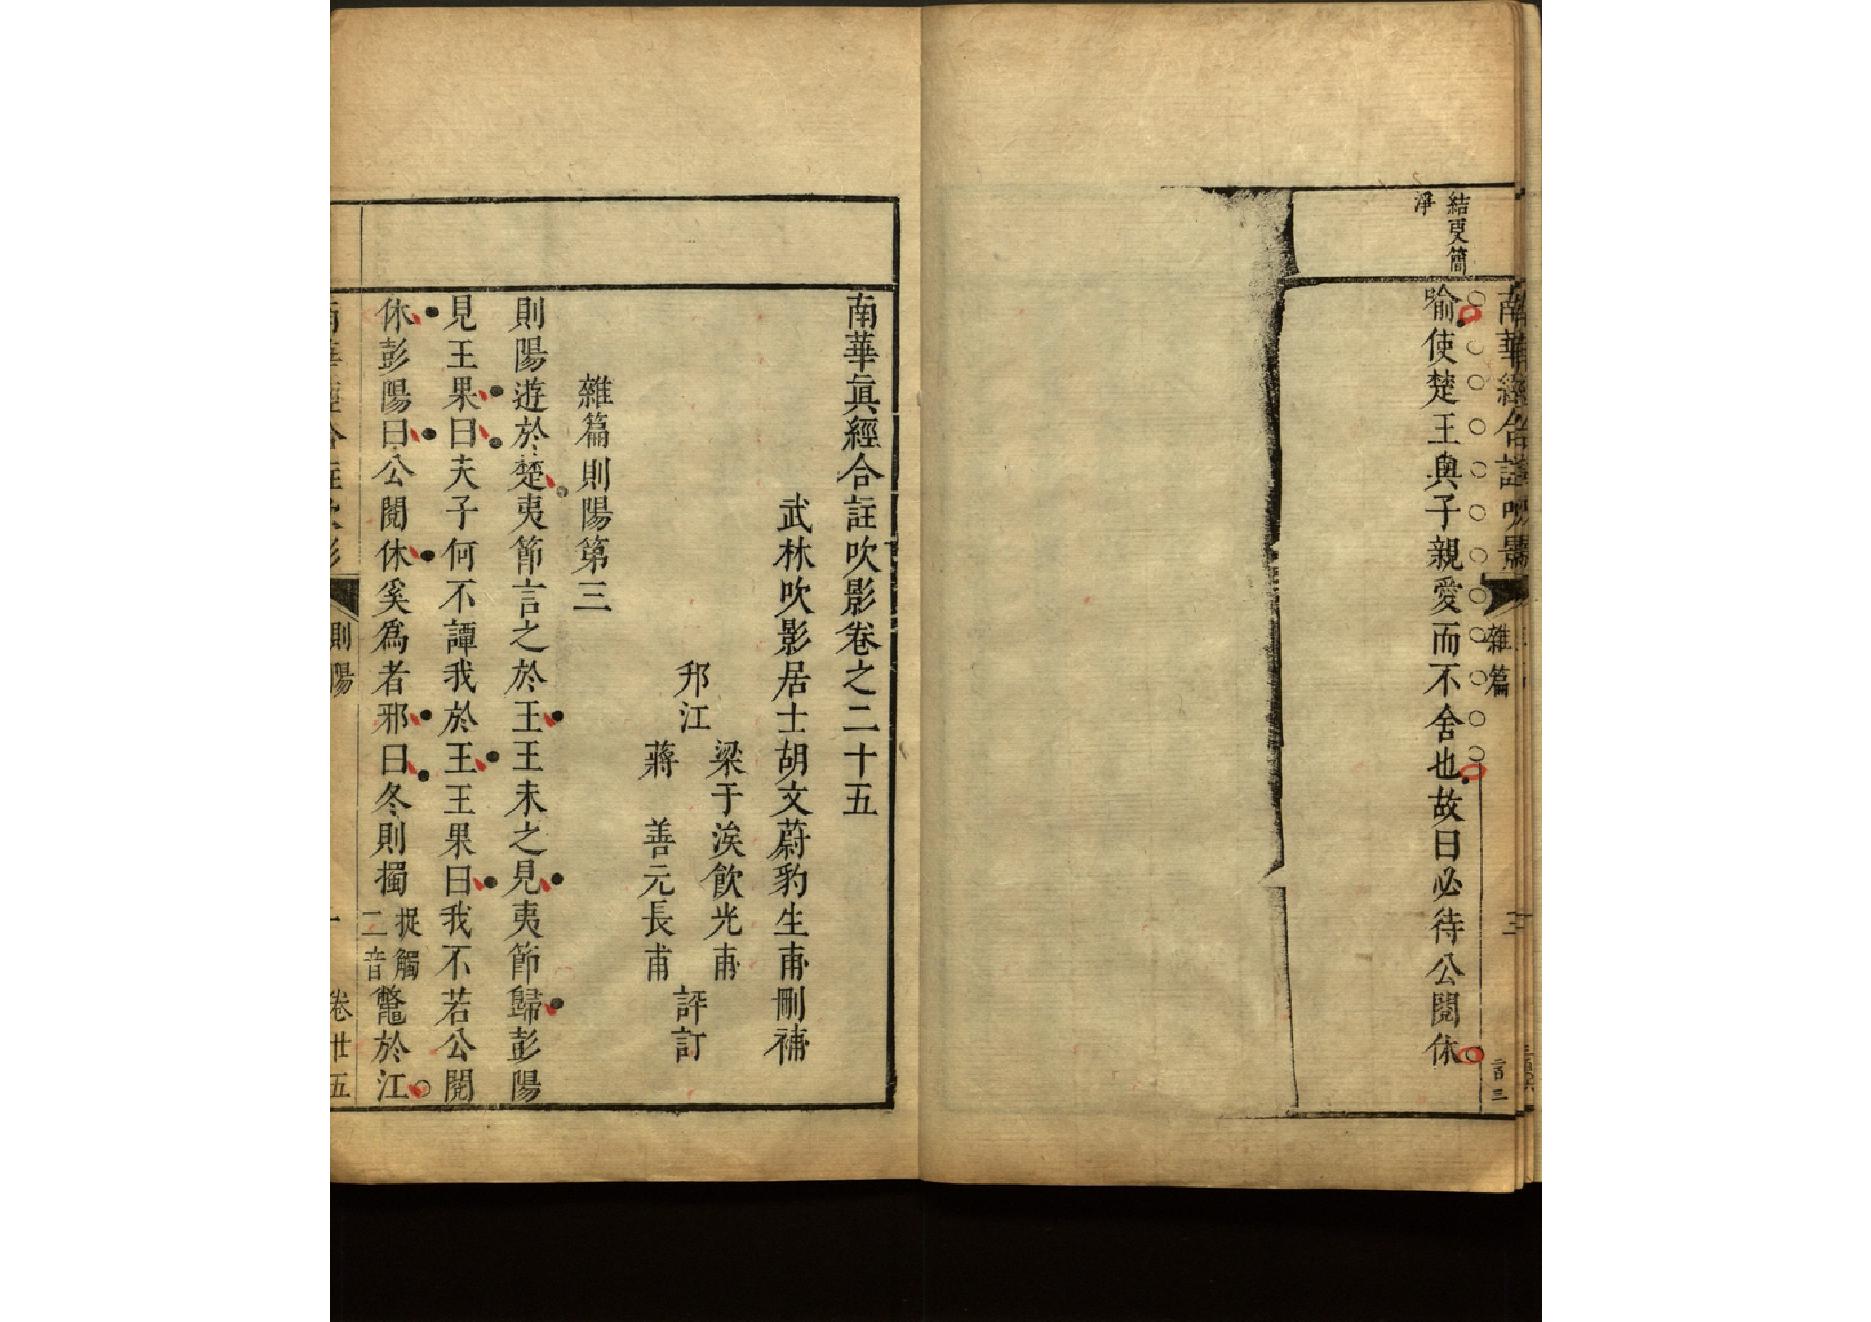 結更簡
淨
喻使楚王與子親愛而不舍也故曰必待公閱休
雜篇
三
南華眞經合註吹影卷之二十五
武林吹影居士胡文蔚豹生甫刪補
邗江
梁于涘飲光甫
蔣善元長甫
評訂
雜篇則陽第三
則陽遊於楚夷節言之於王王未之見夷節歸彭陽
見王果曰夫子何不譚我於王王果曰我不若公閱
休彭陽曰公閱休奚爲者邪曰冬則擉捉觸二音鼈於江
則陽
一
卷廿五